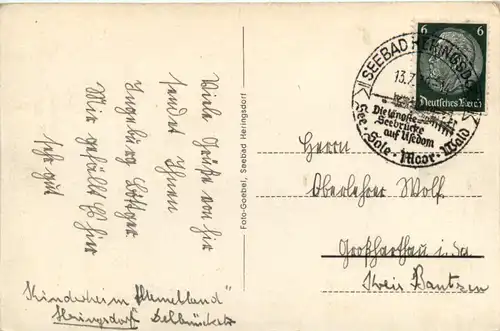 Viele Grüße von hier
sendet Ihnen
Ingeburg Böttger
Mir gefällt es hier
sehr gut
Kinderheim "Hemelland"
Heringsdorf Delbrückstr.
Foto-Goebel, Seebad Heringsdorf
SEEBAD HERINGSD
13.7.
Die längste
Seebrücke
auf Usedom
See - Sole - Moor - Wald
6 6
Deutsches Reich
Herrn
Oberlehrer Wolf
Großharthau i. Sa.
Kreis Bautzen